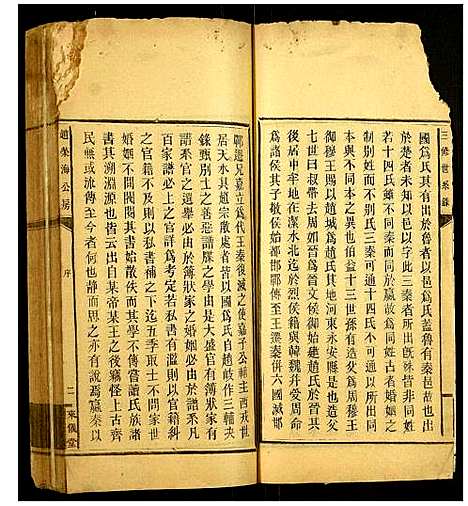 三修世系錄
國爲氏其有出於魯者以邑爲氏蓋魯有秦邑故也出
於楚者未知以邑以字此三秦者所出旣殊皆非同姓
若十四氏雖不同秦而同於嬴故爲同姓古者婚姻之
制別姓而不別氏三秦可通十四氏不可通以所出同
本與不同本之異也伯益十三世孫有造父爲周穆王
御穆王賜以趙城爲趙氏趙城今河東永安縣是也造父
七世曰叔帶去周如晉爲晉文侯御始建趙氏於晉其
後居中牟地在漯水北迄於烈侯籍與韓魏幷受周命
爲諸侯其子敬侯始都邯鄲傳至王遷秦倂六國滅邯
鄲遷兄嘉立爲代王秦復滅之使嘉子公輔主西戎世
居天水其趙宗散處者皆以國爲氏自趙岐作三輔決
錄甄別士之善惡譜牒之學由是大盛官有簿狀家有
譜系官之選舉必由於簿狀家之婚姻必由於譜系凡
百家譜必上之官詳爲考定若私書有濫則以官籍糾
之官籍不及則以私書補之下迄五季取士不問家世
婚姻不問閥閱其書始散佚而其學不傳嘗讀氏族諸
書其溯淵源也皆云出自某帝某王之後竊怪上古齊
民無或㳅傳至今者何也靜而思之亦有說焉嬴秦以
趙榮海公房
序
二
來儀堂